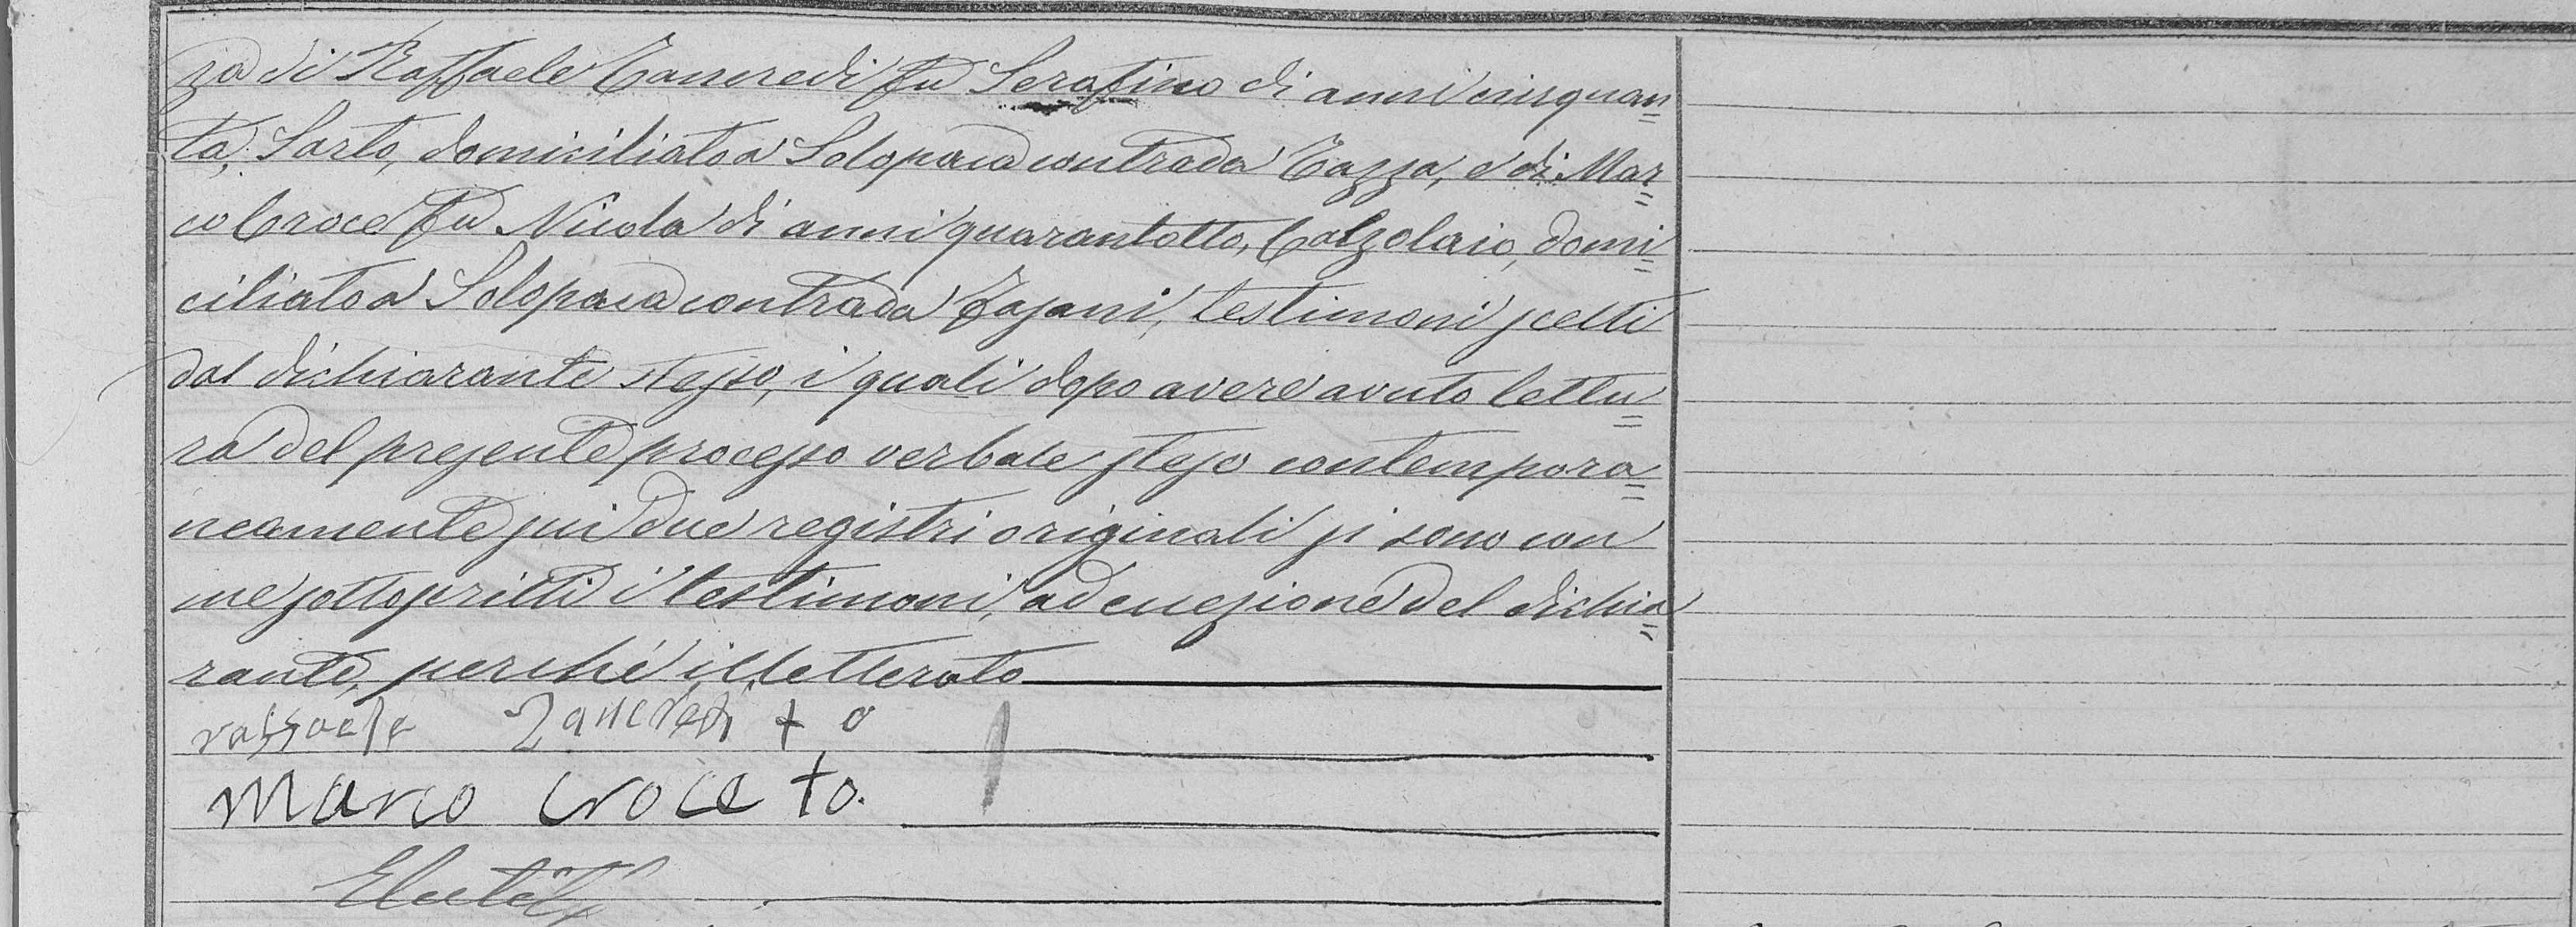 za di Raffaele Tancredi fu Serafino di anni cinquan=
ta, Sarto, domiciliato a Solopaca contrada Tazza, e di Mar=
co Croce fu Nicola di anni quarantotto, Calzolaio, domi=
ciliato a Solopaca contrada Fajani, testimoni scelti
dal dichiarante stesso, i quali dopo avere avuto lettu=
ra del presente processo verbale steso contempora=
neamente sui due registri originali si sono con
me sottoscritti i testimoni, ad eccezione del dichia=
rante, perché illetterato
raffaele Tancredi to
Marco croce to.